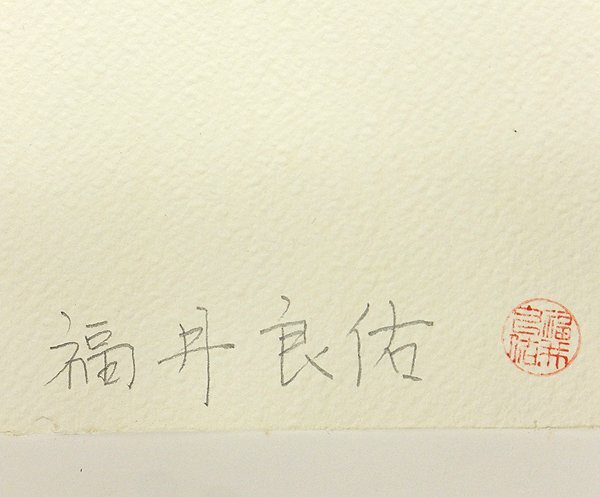 福井良佑
福井良佑